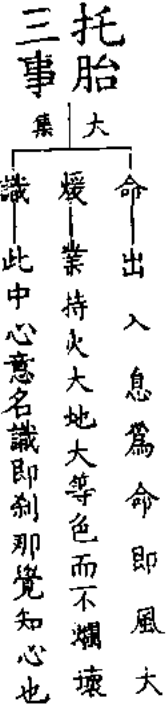 托胎
三事
大集
命 出入息爲命即風大
煖 業持火大地大等色而不爛壞
識 此中心意名識即刹那覺知心也